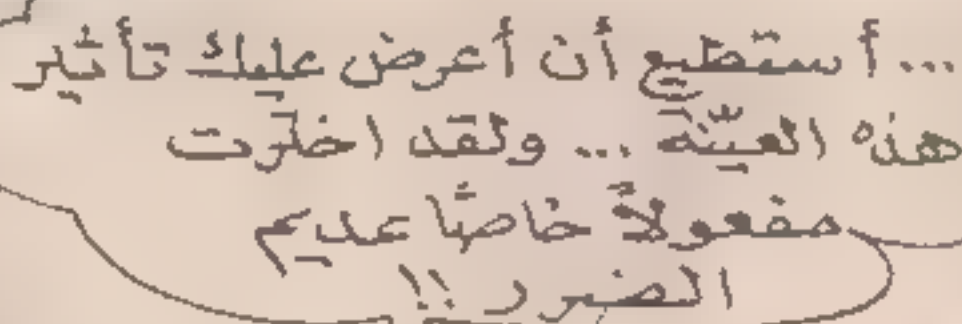 ... أستطيع أن أعرض عليك تأثير
هذه العيّنة ... ولقد اخترت
مفعولاً خاصًا عديم
الضرر !!